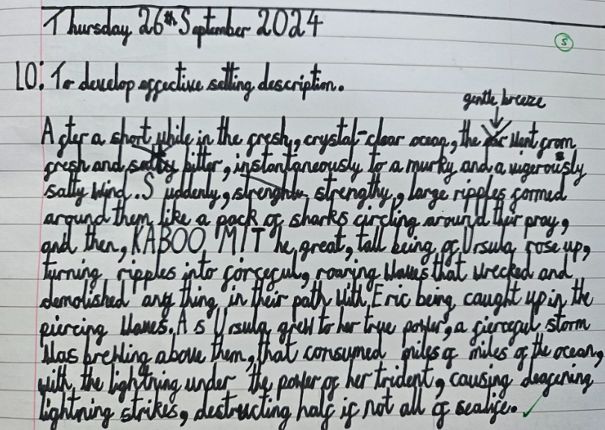 Thursday 26th September 2024
S
LO: To develop effective setting description.
gentle breeze
After a short while in the fresh, crystal-clear ocean, the air went from
fresh and salty bitter, instantaneously to a murky and a vigerously
salty wind. Suddenly, strenghtu, strengthy, large ripples formed
around them like a pack of sharks circling around their pray,
and then, KABOOM! The, great, tall being of Ursula rose up,
turning ripples into forceful, roaring waves that wrecked and
demolished any thing in their path with Eric being caught up in the
piercing waves. As Ursula grew to her true power, a fierceful storm
was brewing above them, that consumed miles of miles of the ocean,
with the lightning under the power of her trident, causing deafening
lightning strikes, destructing half if not all of sealife.